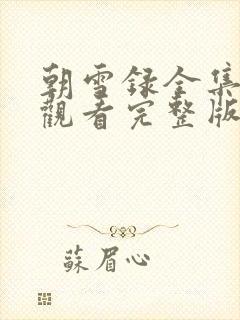 朝雪録全集
觀看完整版
蘇眉心